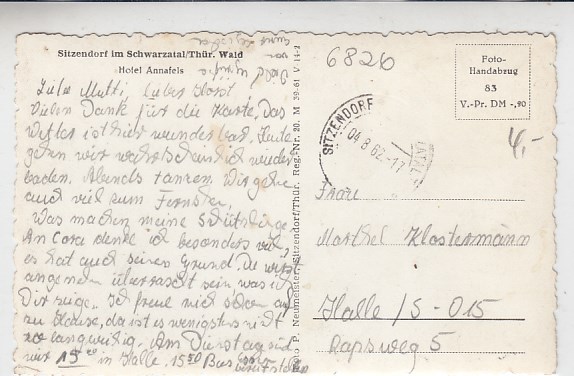 Sitzendorf im Schwarzatal/Thür. Wald
Hotel Annafels
Liebe Mutti, lieber Horst
Vielen Dank für die Karte, Das
Wetter ist hier wunderbar. Heute
gehen wir wahrscheinlich wieder
baden. Abends tanzen. Wir gehen
auch viel zum Fernsehn.
Was machen meine
An Cora denke ich besonders viel,
es hat auch seinen Grund. Du wirst
angenehm überrascht sein, was ich
Dir zeige. Ich freue mich schon auf
zu Hause, da ist es wenigstens nicht
so langweilig. Am Dienstag sind
wir 15 in Halle. 15.50 Bus
Foto P. Neumeister, Sitzendorf/Thür. Reg.-Nr. 20. M 39-61 V 14-2
6826
Foto-
Handabzug
83
V.-Pr. DM -,20
4,-
SITZENDORF
04.8.62.-17
Frau
Marthel Klostermann
Halle/S - 015
Rapsweg 5